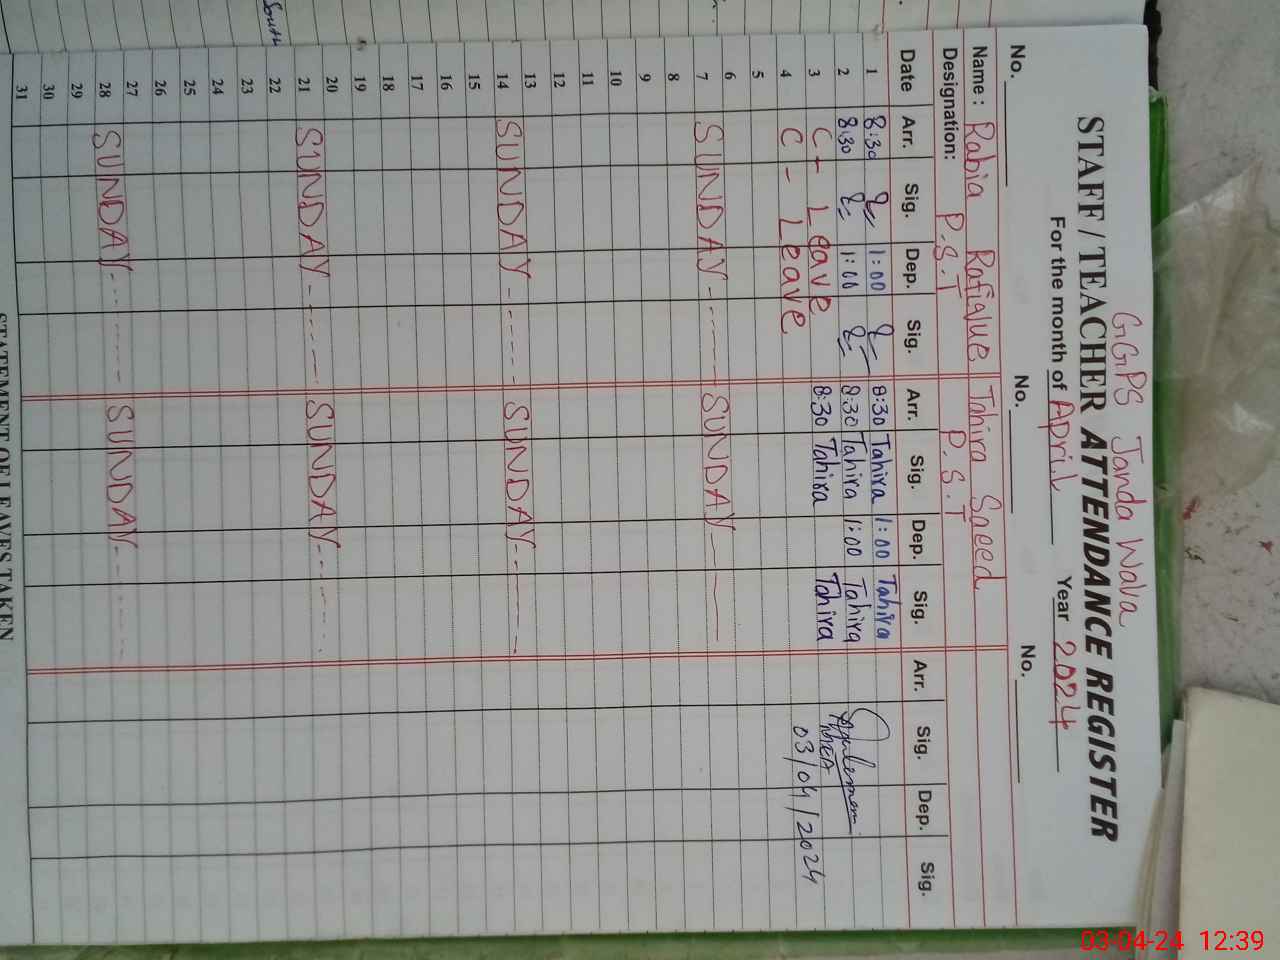 South
GGPS Janda Wala
STAFF / TEACHER ATTENDANCE REGISTER
For the month of April Year 2024
No. No. No.
Name : Rabia Rafique Tahira Saeed
Designation: P.S.T P.S.T
Date Arr. Sig. Dep. Sig. Arr. Sig. Dep. Sig. Arr. Sig. Dep. Sig.
1 8:30 1:00 8:30 Tahira 1:00 Tahira
2 8:30 1:00 8:30 Tahira 1:00 Tahira
3 C - Leave 8:30 Tahira Tahira
4 C - Leave 03/04/2024
5
6
7 SUNDAY SUNDAY
8
9
10
11
12
13
14 SUNDAY SUNDAY
15
16
17
18
19
20
21 SUNDAY SUNDAY
22
23
24
25
26
27
28 SUNDAY SUNDAY
29
30
31
STATEMENT OF LEAVES TAKEN
03-04-24 12:39